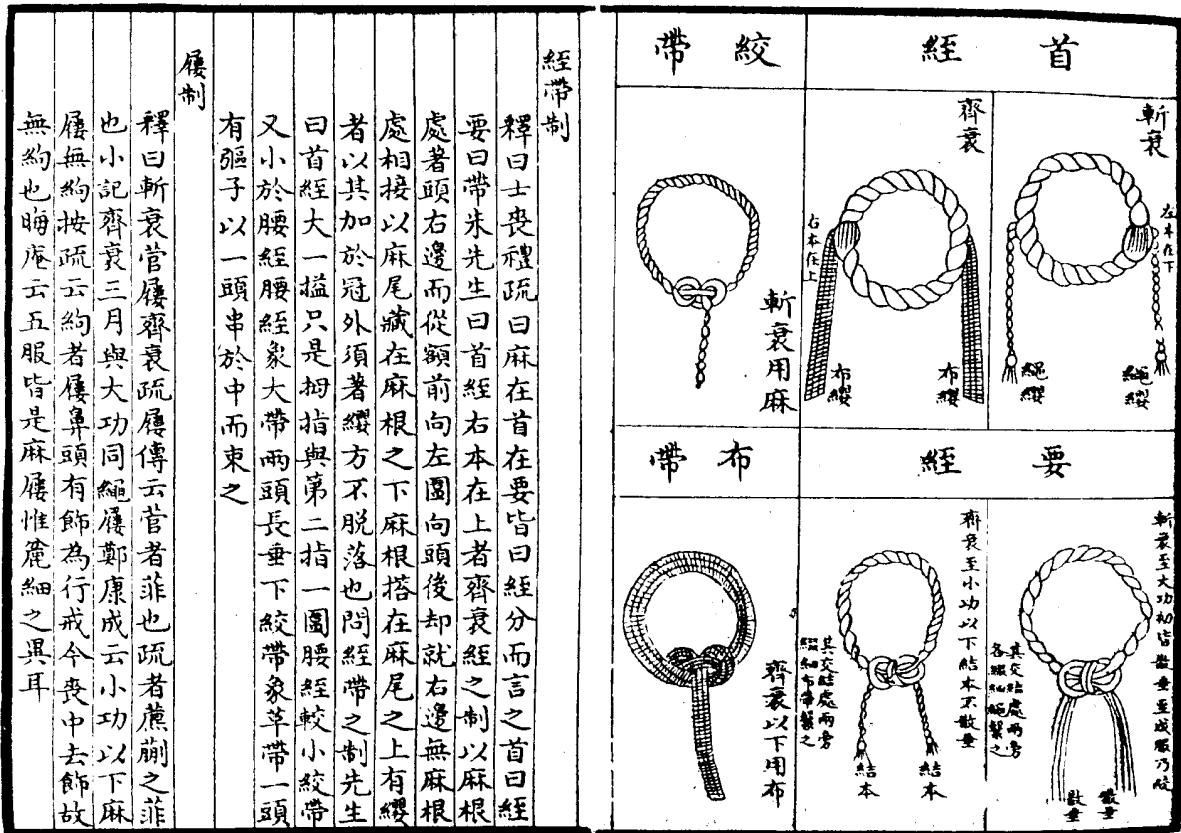 首絰
斬衰
左本在下
繩纓
繩纓
齊衰
右本在上
布纓
布纓
絞帶
斬衰用麻
要絰
斬衰至大功初皆散垂至成服乃絞
其交結處兩旁
各綴細繩繫之
散垂
散垂
齊衰至小功以下結本不散垂
其交結處兩旁
綴細布帶繫之
結本
結本
布帶
齊衰以下用布
絰帶制
釋曰士喪禮疏曰麻在首在要皆曰絰分而言之首曰絰
要曰帶朱先生曰首絰右本在上者齊衰絰之制以麻根
處著頭右邊而從額前向左圍向頭後却就右邊無麻根
處相接以麻尾藏在麻根之下麻根搭在麻尾之上有纓
者以其加於冠外須著纓方不脱落也問絰帶之制先生
曰首絰大一搤只是拇指與第二指一圍腰絰較小絞帶
又小於腰絰腰絰象大帶兩頭長垂下絞帶象革帶一頭
有彄子以一頭串於中而束之
屨制
釋曰斬衰菅屨齊衰疏屨傳云菅者菲也疏者藨蒯之菲
也小記齊衰三月與大功同繩屨鄭康成云小功以下麻
屨無絇按疏云絇者屨鼻頭有飾為行戒今喪中去飾故
無絇也晦庵云五服皆是麻屨惟麄細之異耳